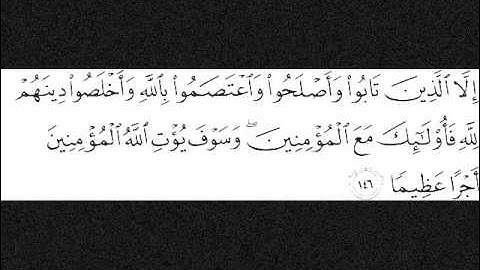 إِلَّا ٱلَّذِينَ تَابُوا۟ وَأَصۡلَحُوا۟ وَٱعۡتَصَمُوا۟ بِٱللَّهِ وَأَخۡلَصُوا۟ دِينَهُمۡ
لِلَّهِ فَأُو۟لَٰٓئِكَ مَعَ ٱلۡمُؤۡمِنِينَۖ وَسَوۡفَ يُؤۡتِ ٱللَّهُ ٱلۡمُؤۡمِنِينَ
أَجۡرًا عَظِيمٗا ١٤٦